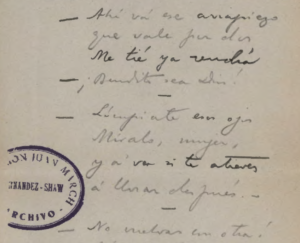 — Ahí vá ese arrapiezo
que vale por dos
Me tié ya rendía
— ¡Bendito sea Dios!
— Límpiate esos ojos
Míralo, mujer,
y a ver si te atreves
á llorar después —
— No vuelvas con otra!
ON JUAN MARCH
RNANDEZ-SHAW
ARCHIVO